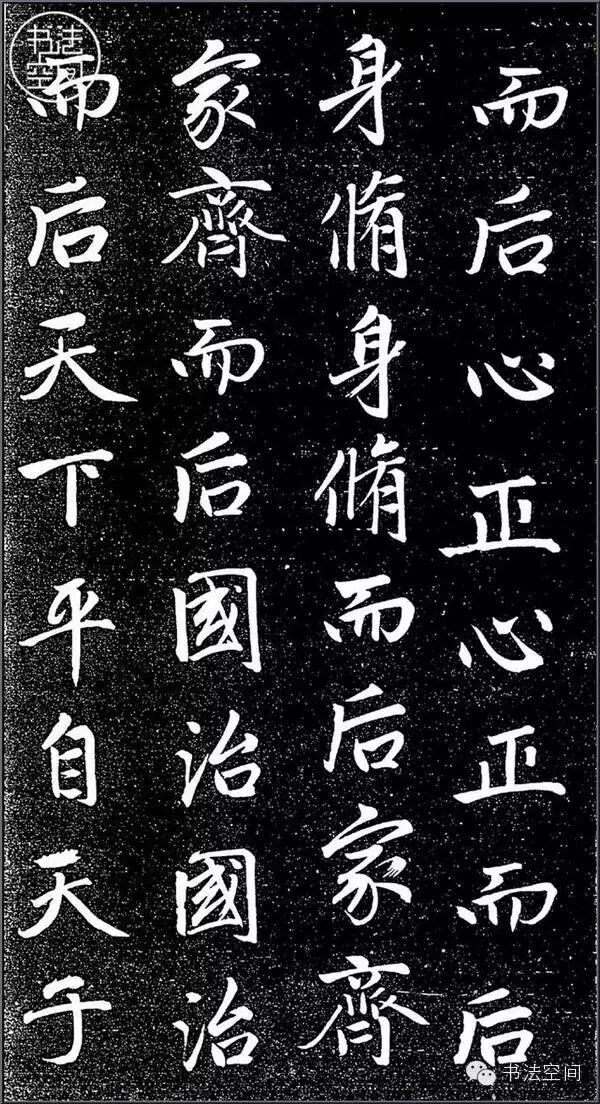 而后心正心正而后
身脩身脩而后家齊
家齊而后國治國治
而后天下平自天子
书法空间
书法空间